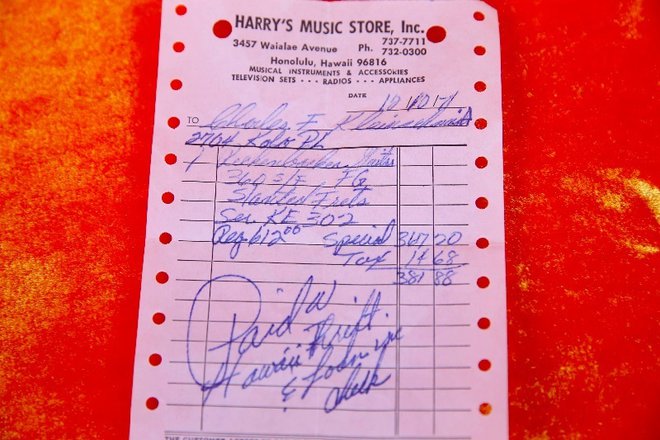 HARRY'S MUSIC STORE, Inc.
737-7711
3457 Waialae Avenue Ph. 732-0300
Honolulu, Hawaii 96816
MUSICAL INSTRUMENTS & ACCESSORIES
TELEVISION SETS · · · RADIOS · · · APPLIANCES
DATE
TO Charles F. Kleinschmidt
2704 Kolo Pl
1 Rickenbacker Guitar
360 S/F, FG
Slanted Frets
Ser KE 302
Reg 612.00 Special 367 20
Tax 14 68
381 88
Paid w
Hawaii Thrift
& Loan inc
check